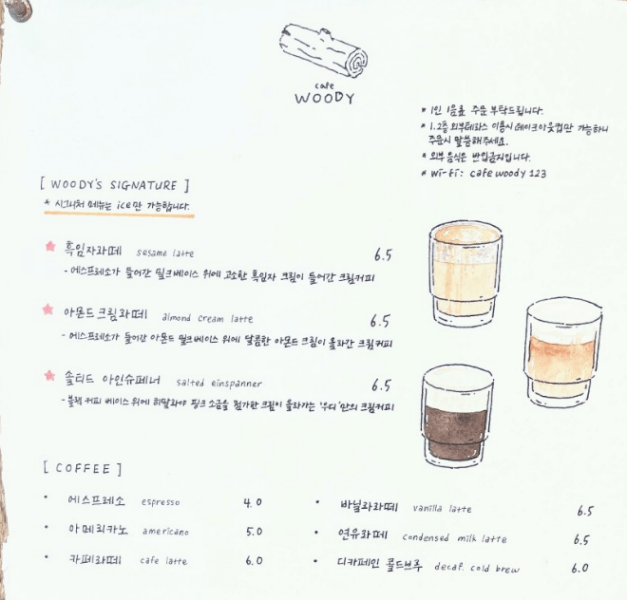 cafe
WOODY
* 1인 1음료 주문 부탁드립니다.
* 1.2층 외부테라스 이용시 테이크아웃컵만 가능하니
주문시 말씀해주세요.
* 외부 음식은 반입금지입니다.
* Wi-fi: cafe woody 123
[ WOODY's SIGNATURE ]
* 시그니처 메뉴는 ice만 가능합니다.
흑임자라떼 sesame latte 6.5
- 에스프레소가 들어간 밀크베이스 위에 고소한 흑임자 크림이 들어간 크림커피
아몬드크림라떼 almond cream latte 6.5
- 에스프레소가 들어간 아몬드 밀크베이스 위에 달콤한 아몬드크림이 올라간 크림커피
솔티드 아인슈페너 salted einspanner 6.5
- 블랙 커피 베이스 위에 히말라야 핑크 소금을 첨가한 크림이 올라가는 '우디'만의 크림커피
[ COFFEE ]
* 에스프레소 espresso 4.0
* 아메리카노 americano 5.0
* 카페라떼 cafe latte 6.0
* 바닐라라떼 vanilla latte 6.5
* 연유라떼 condensed milk latte 6.5
* 디카페인 콜드브루 decaf. cold brew 6.0